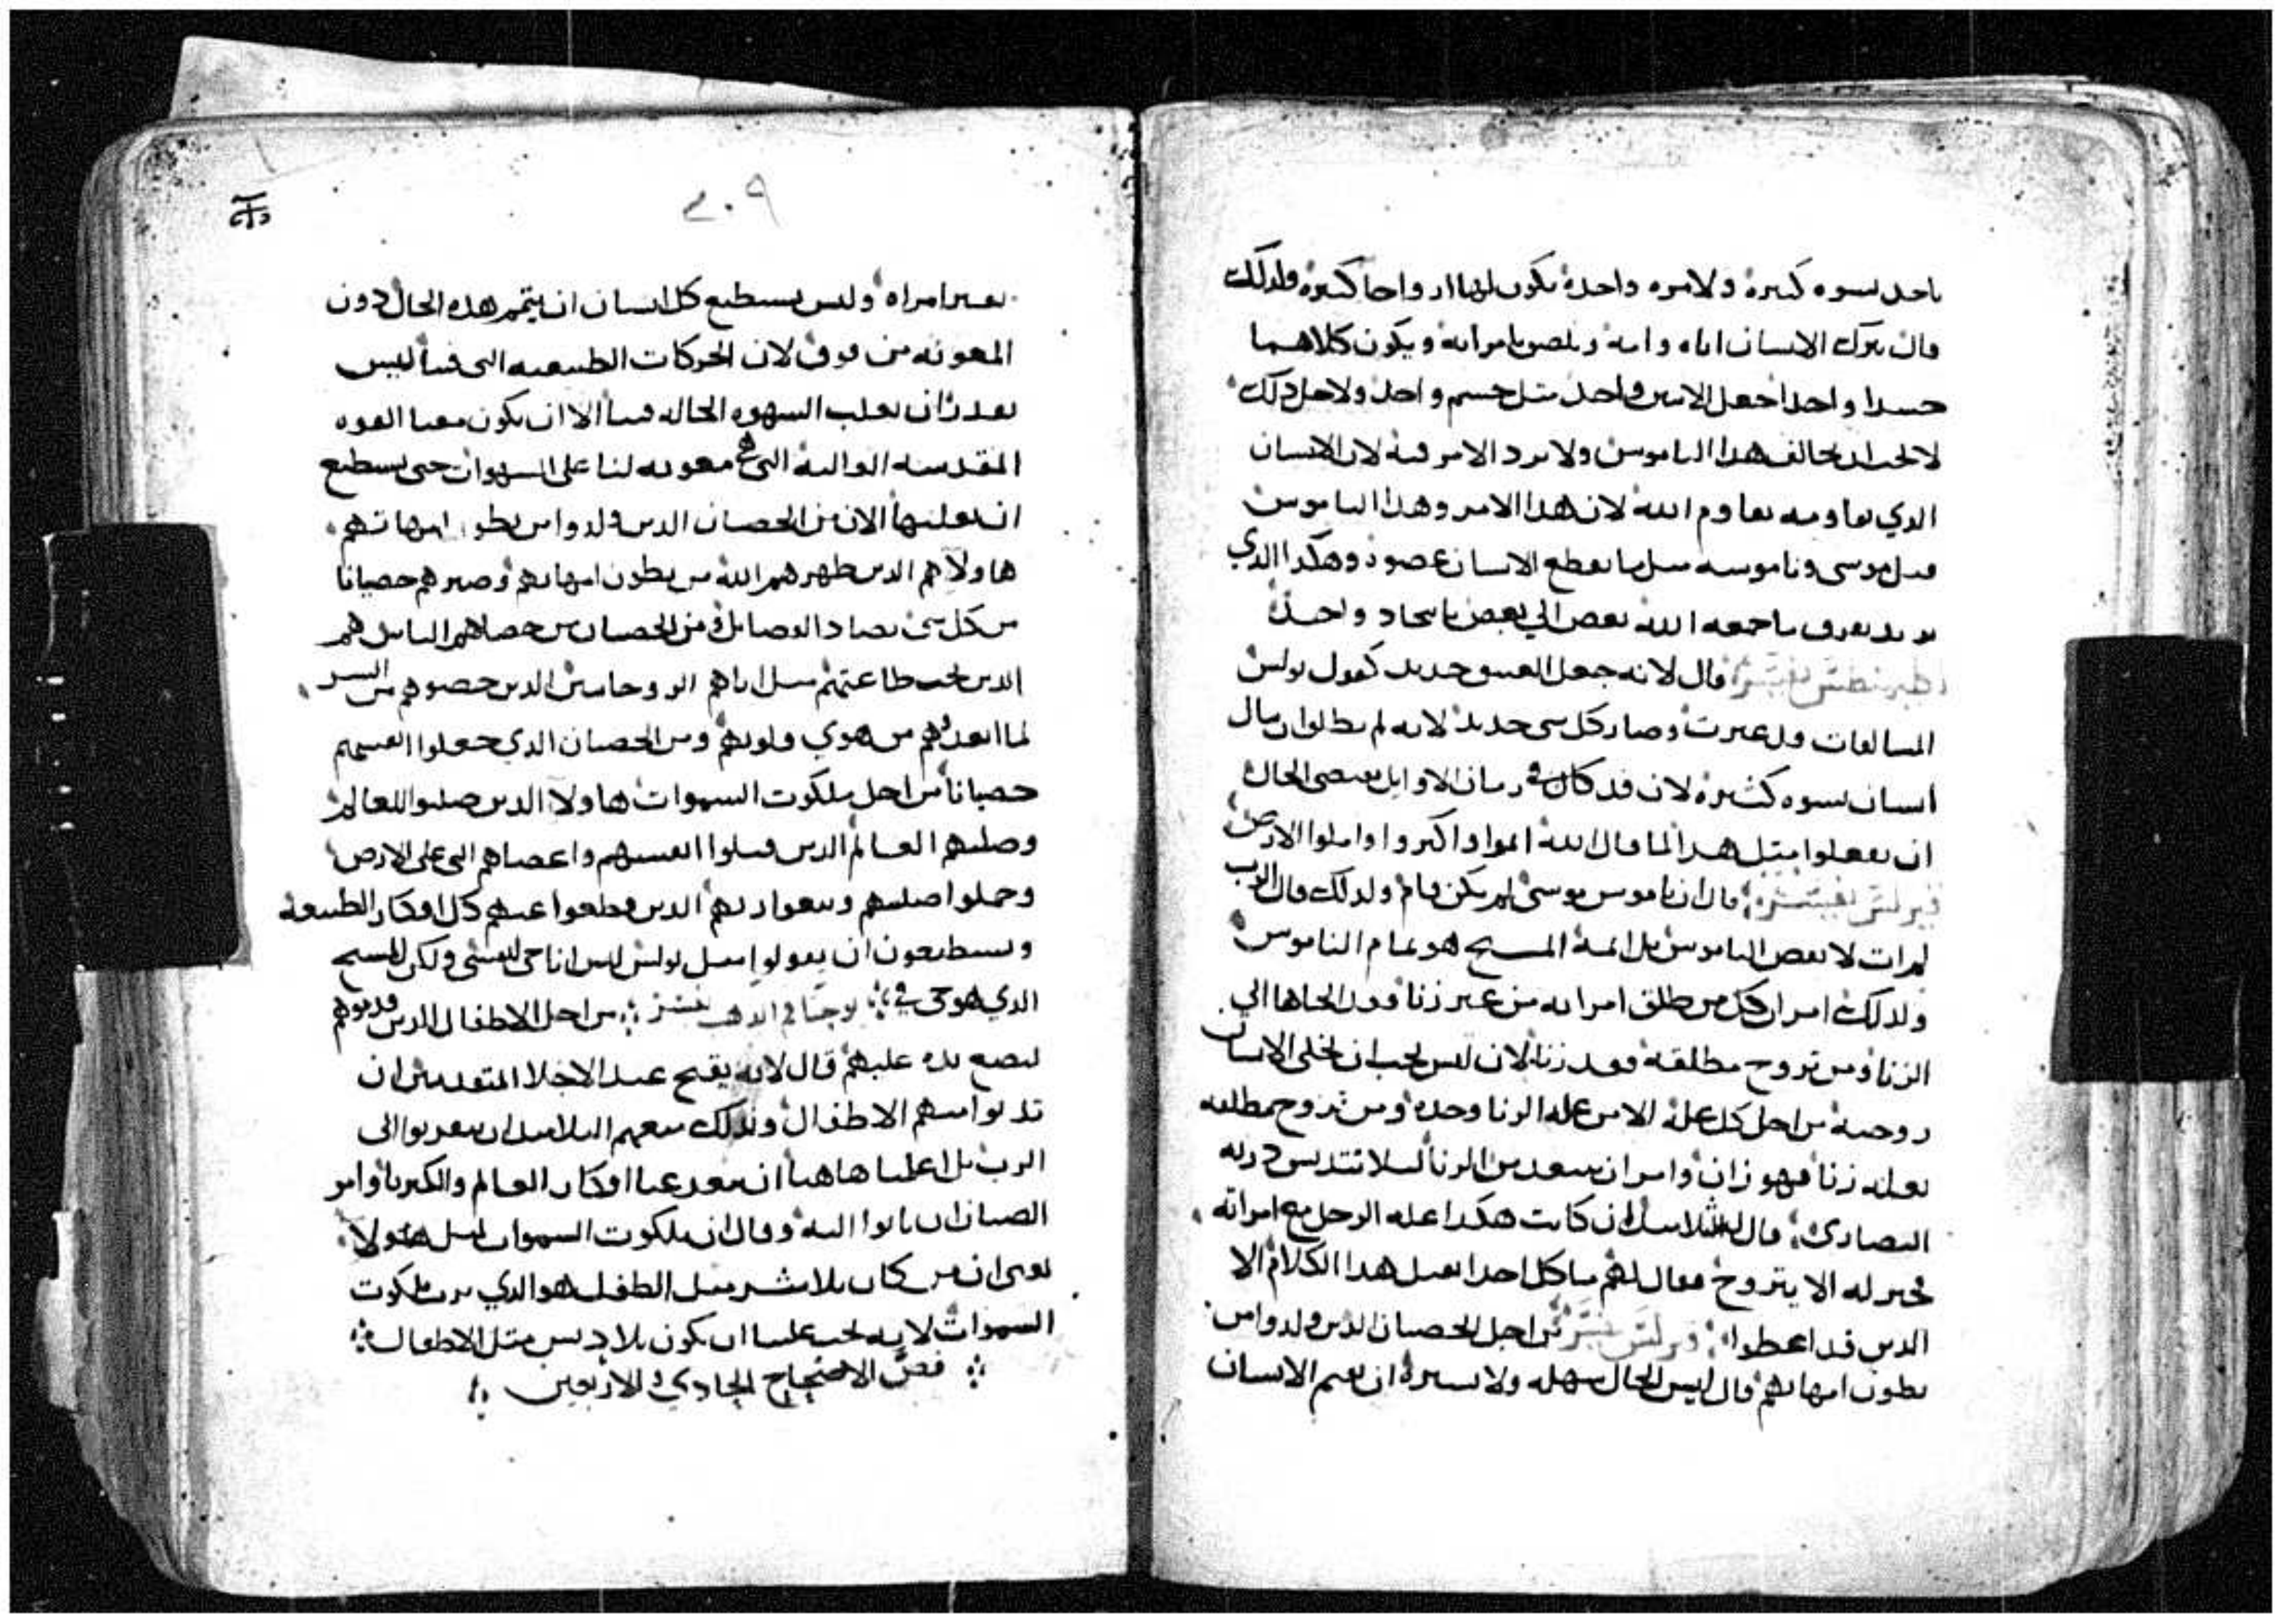 ياخد نسوه كتيرة ولا مره واحدة يكون لها ازواجا كتيره ولدلك
قال يترك الانسان اباه وامه ويلصق بامراته ويكون كلاهما
جسدا واحدا جعل الاتنين واحد متل جسم واحد ولاجل دلك
لا يجب ان يخالف هدا الناموس ولا يرد الامر فيه لان الانسان
الدي يقاومه يقاوم الله لان هدا الامر وهدا الناموس
قبل موسى وناموسه متل ما يقطع الانسان عضوه وهكدا الدي
يريد يفرق ما جمعه الله بعض الي بعض باتحاد واحد
تفسير قال لانه جعل العتيق جديد كقول بولس
السالفات قد عبرت وصار كل شي جديد لانه لم يطلق ان ينال
انسان نسوه كثيرة لان قد كان في زمان الاوايل يقتضي الحال
ان يفعلوا مثل هدا لما قال الله انموا واكثروا واملوا الارض
كيرلس تفسير قال ان ناموس موسى لم يكن تام ولدلك قال الرب
لم ات لانقض الناموس بل اتمه المسيح هو تمام الناموس
ولدلك امر ان كل من طلق امراته من غير زنا فقد الجاها الى
الزنا ومن تزوج مطلقة فقد زنا لان ليس يجب ان يخلى الانسان
زوجته من اجل كل علة الا من علة الزنا وحده ومن تزوج مطلقه
بعلة زنا فهو زان وامر ان يبتعد من الزنا ليلا تتدنس
قال له التلاميد ان كانت هكدا علة الرجل مع امراته
فخير له الا يتزوج فقال لهم ما كل احد يقبل هدا الكلام الا
الدين قد اعطوا كيرلس تفسير من اجل الخصيان الدين ولدوا من
بطون امهاتهم قال ليس الحال سهله ولا يسيرة ان يقيم الانسان
٢٠٩
بغير امراه وليس يستطيع كل انسان ان يتمم هده الحال دون
المعونه من فوق لان الحركات الطبيعيه التى فينا ليس
نقدر ان نغلب الشهوه الحاله فينا الا ان يكون معنا القوه
المقدسه العاليه التى هي معونه لنا على الشهوات حتى نستطيع
ان نغلبها الان من الخصيان الدين ولدوا من بطون امهاتهم
هاولاى هم الدين طهرهم الله من بطون امهاتهم وصيرهم خصيانا
من كل شى يضاد الفضايل ومن الخصيان من خصاهم الناس هم
الدين تحت طاعتهم متل اباهم الروحانيين الدين خصوهم من الشر
لما ابعدوهم من هوي قلوبهم ومن الخصيان الدي جعلوا انفسهم
خصيانا من اجل ملكوت السموات هاولا الدين صلبوا للعالم
وصلبهم العالم الدين قتلوا انفسهم واعضاهم التى على الارض
وحملوا صليبهم وتبعوا ربهم الدين قطعوا عنهم كل افكار الطبيعة
ويستطيعون ان يقولوا متل بولس ليس انا حى لنفسي ولكن المسيح
الدي هو حى في يوحنا فم الدهب تفسير من اجل الاطفال الدين قدموهم
ليضع يده عليهم قال لانه يقبح عند الاجلا المتقدمين ان
تدنوا منهم الاطفال ولدلك منعهم التلاميد ان يتقربوا الى
الرب بل اعلمنا هاهنا ان نبعد عنا افكار العالم والكبريا وامر
الصبيان ان ياتوا اليه وقال ان ملكوت السموات لمتل هولا
يعنى ان من كان بلا شر متل الطفل هو الدي يرت ملكوت
السموات لانه يجب علينا ان نكون بلا دنس متل الاطفال
فصل الاصحاح الحادي والاربعين